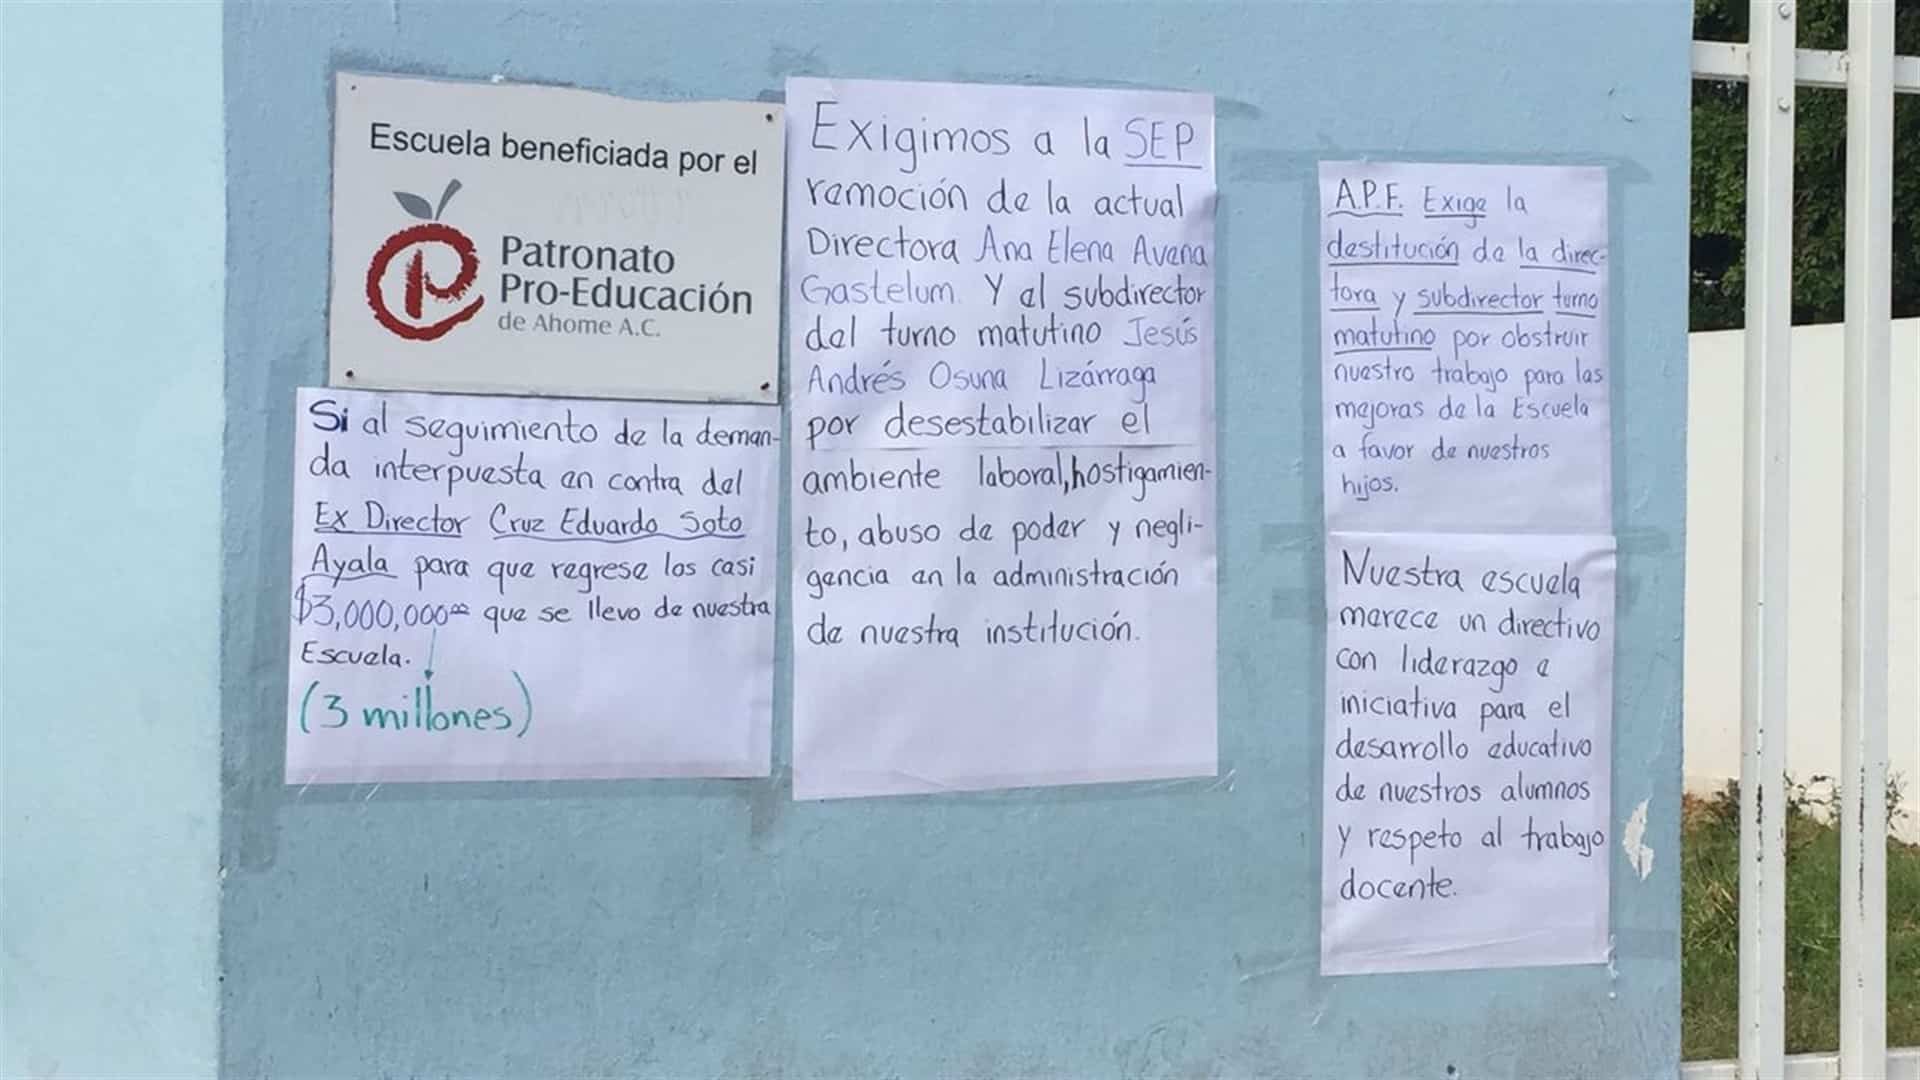 Escuela beneficiada por el
Patronato
Pro-Educación
de Ahome A.C.
Si al seguimiento de la deman-
da interpuesta en contra del
Ex Director Cruz Eduardo Soto
Ayala para que regrese los casi
$3,000,000.00 que se llevo de nuestra
Escuela.
(3 millones)
Exigimos a la SEP
remoción de la actual
Directora Ana Elena Avena
Gastelum. Y al subdirector
del turno matutino Jesús
Andrés Osuna Lizárraga
por desestabilizar el
ambiente laboral, hostigamien-
to, abuso de poder y negli-
gencia en la administración
de nuestra institución.
A.P.F. Exige la
destitución de la direc-
tora y subdirector turno
matutino por obstruir
nuestro trabajo para las
mejoras de la Escuela
a favor de nuestros
hijos.
Nuestra escuela
merece un directivo
con liderazgo e
iniciativa para el
desarrollo educativo
de nuestros alumnos
y respeto al trabajo
docente.